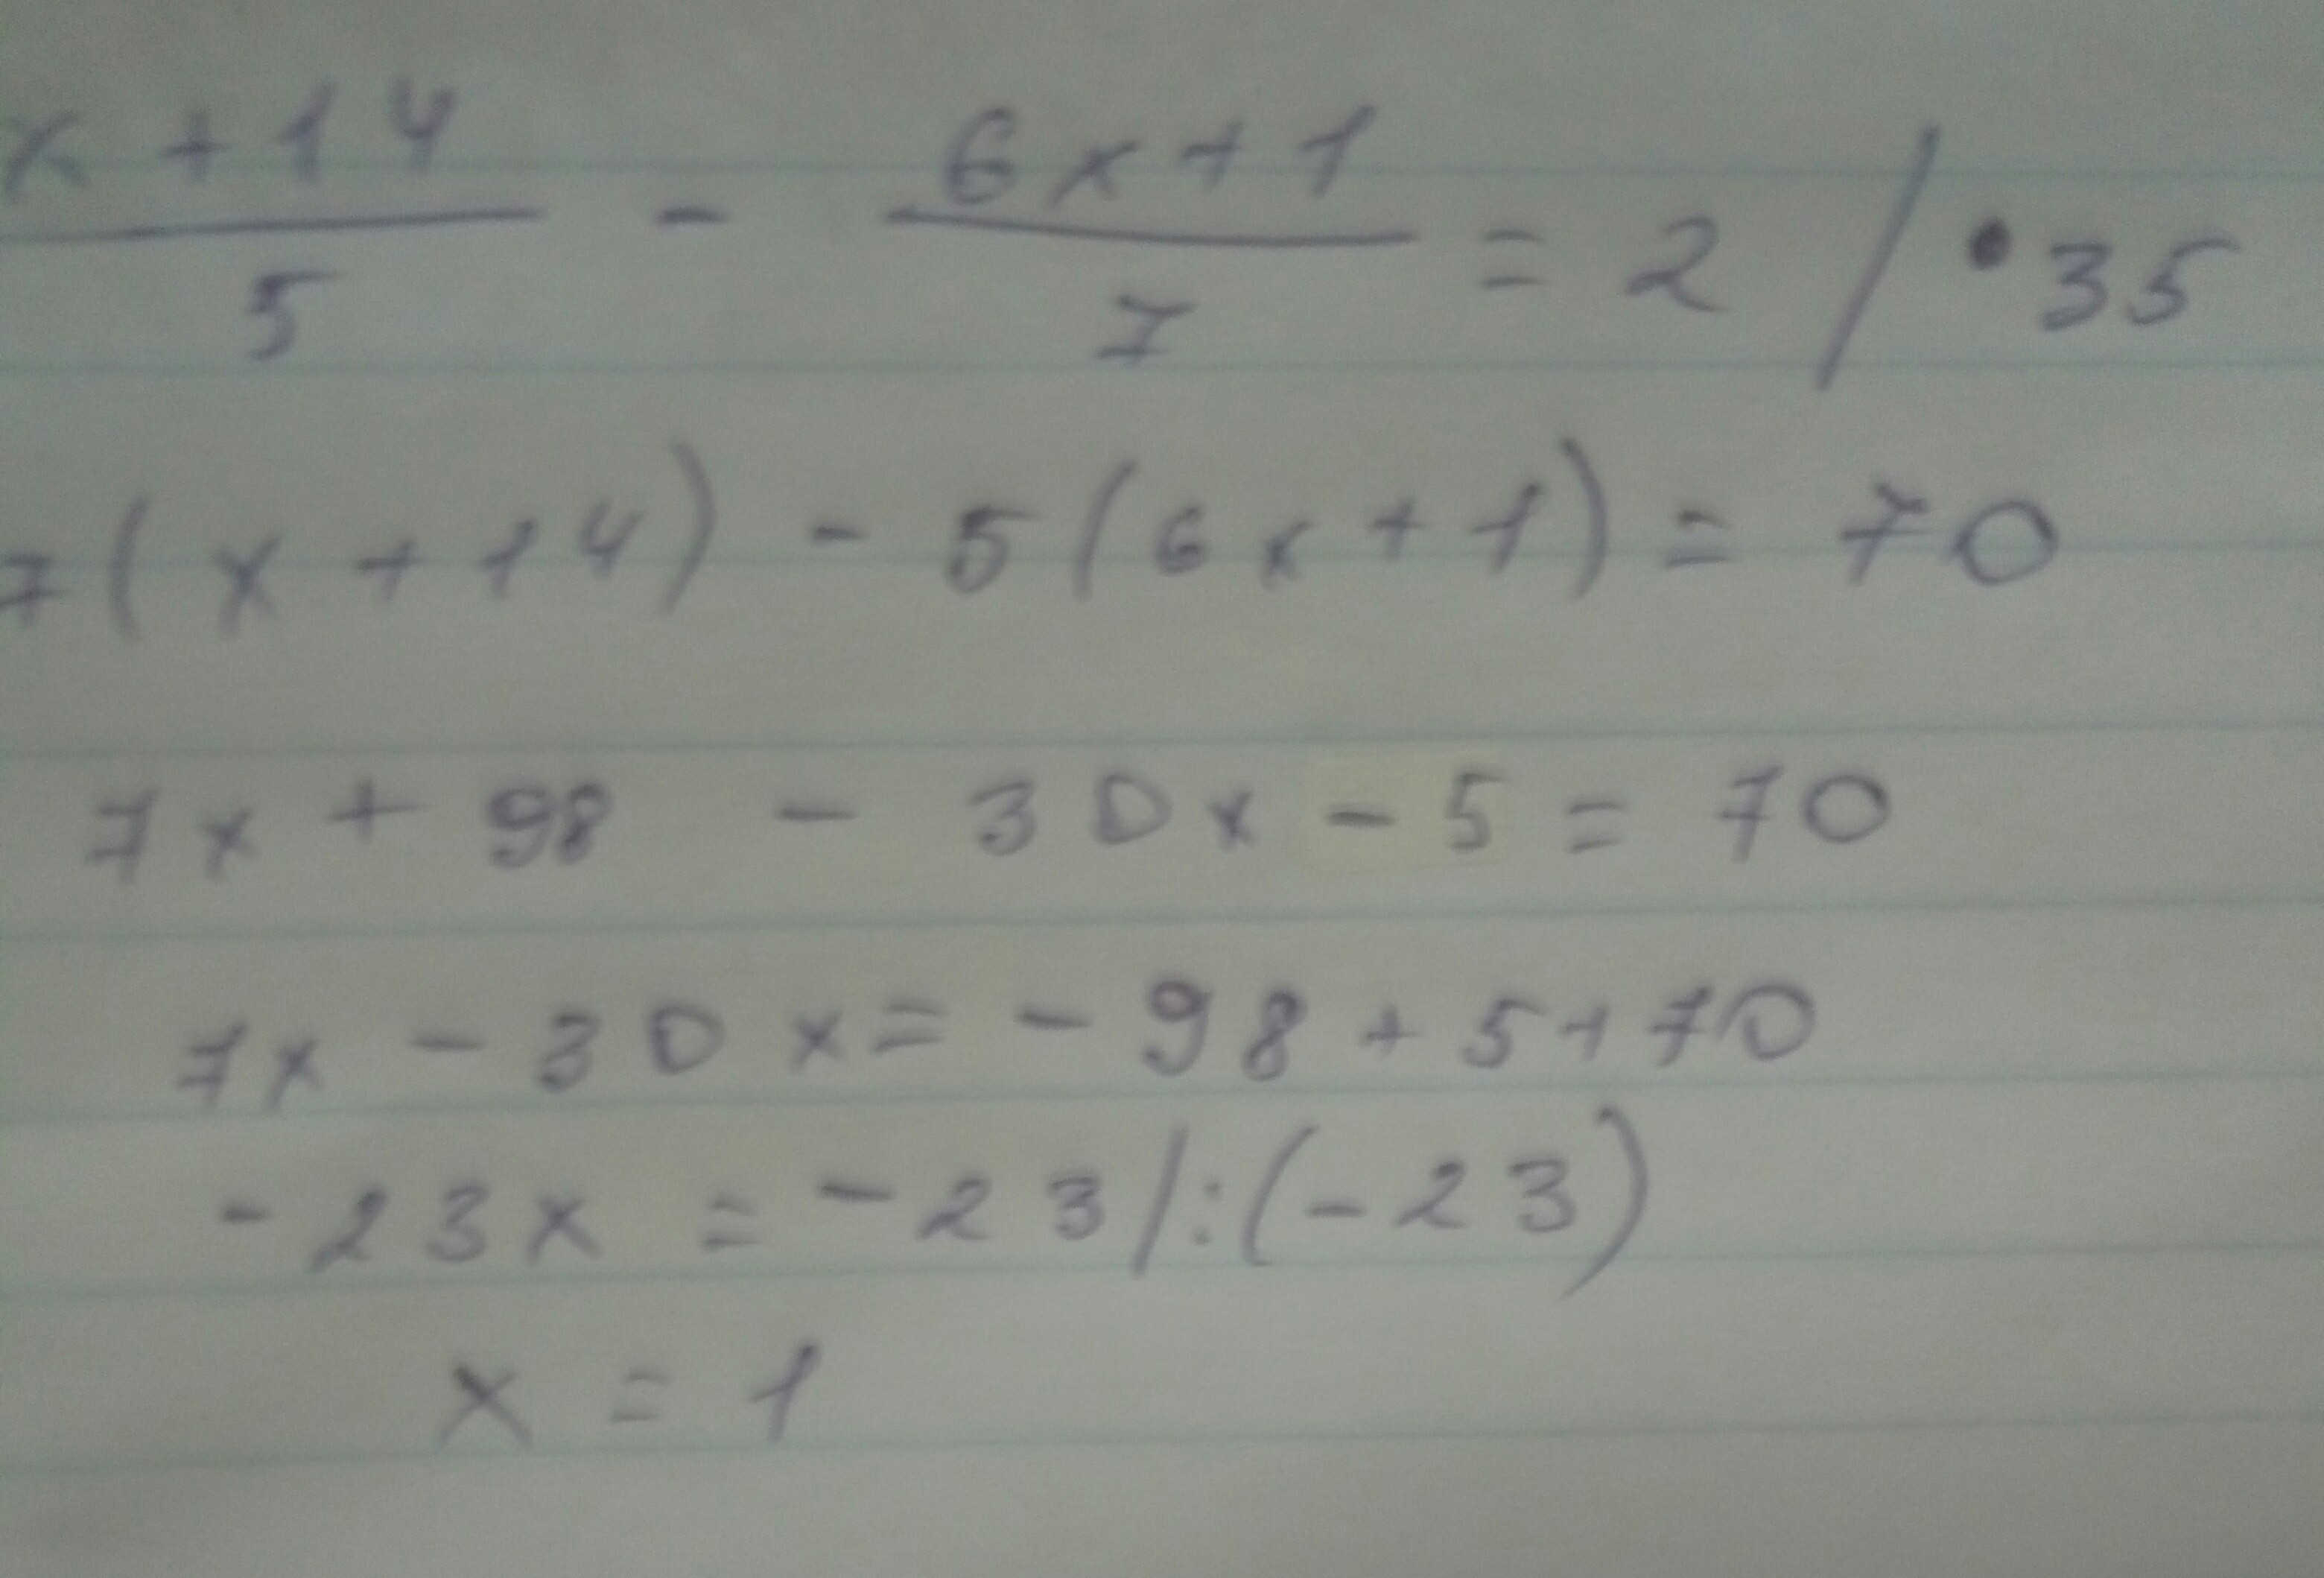 x + 14 / 5 - 6x + 1 / 7 = 2 / • 35
7(x + 14) - 5(6x + 1) = 70
7x + 98 - 30x - 5 = 70
7x - 30x = - 98 + 5 + 70
- 23x = - 23 /:(-23)
x = 1